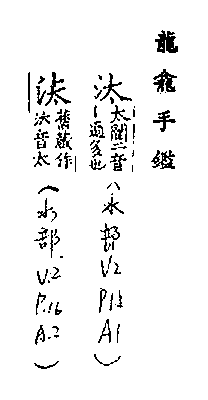 龍龕手鑑
汰
太闥二音
丨過多也
(水部
V2
A1
)
舊藏作
汰音太
(水部.
V.2
P.16
A.2
)